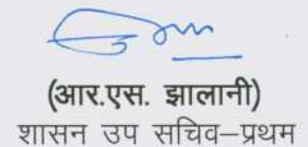 (आर.एस. झालानी)
शासन उप सचिव–प्रथम